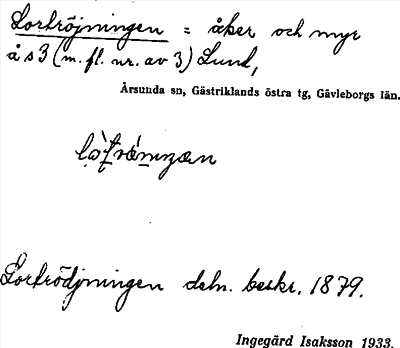 Lortröjningen = åker och myr
å s3 (m. fl. nr. av 3) Lund,
Årsunda sn, Gästriklands östra tg, Gävleborgs län.
Lortrödjningen deln. beskr. 1879.
Ingegärd Isaksson 1933.